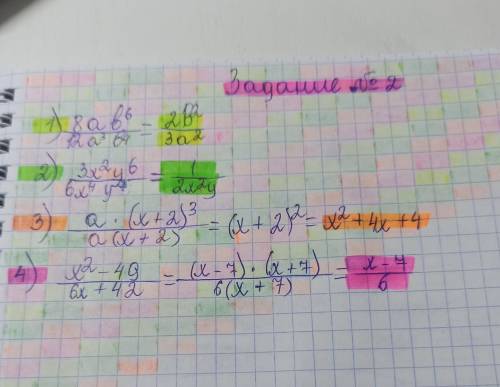 Задание № 2
1) 8ab⁶/12a³b⁴ = 2b²/3a²
2) 3x²y⁶/6x⁴y⁷ = 1/2x²y
3) a·(x+2)³/a(x+2) = (x+2)² = x²+4x+4
4) x²-49/6x+42 = (x-7)·(x+7)/6(x+7) = x-7/6